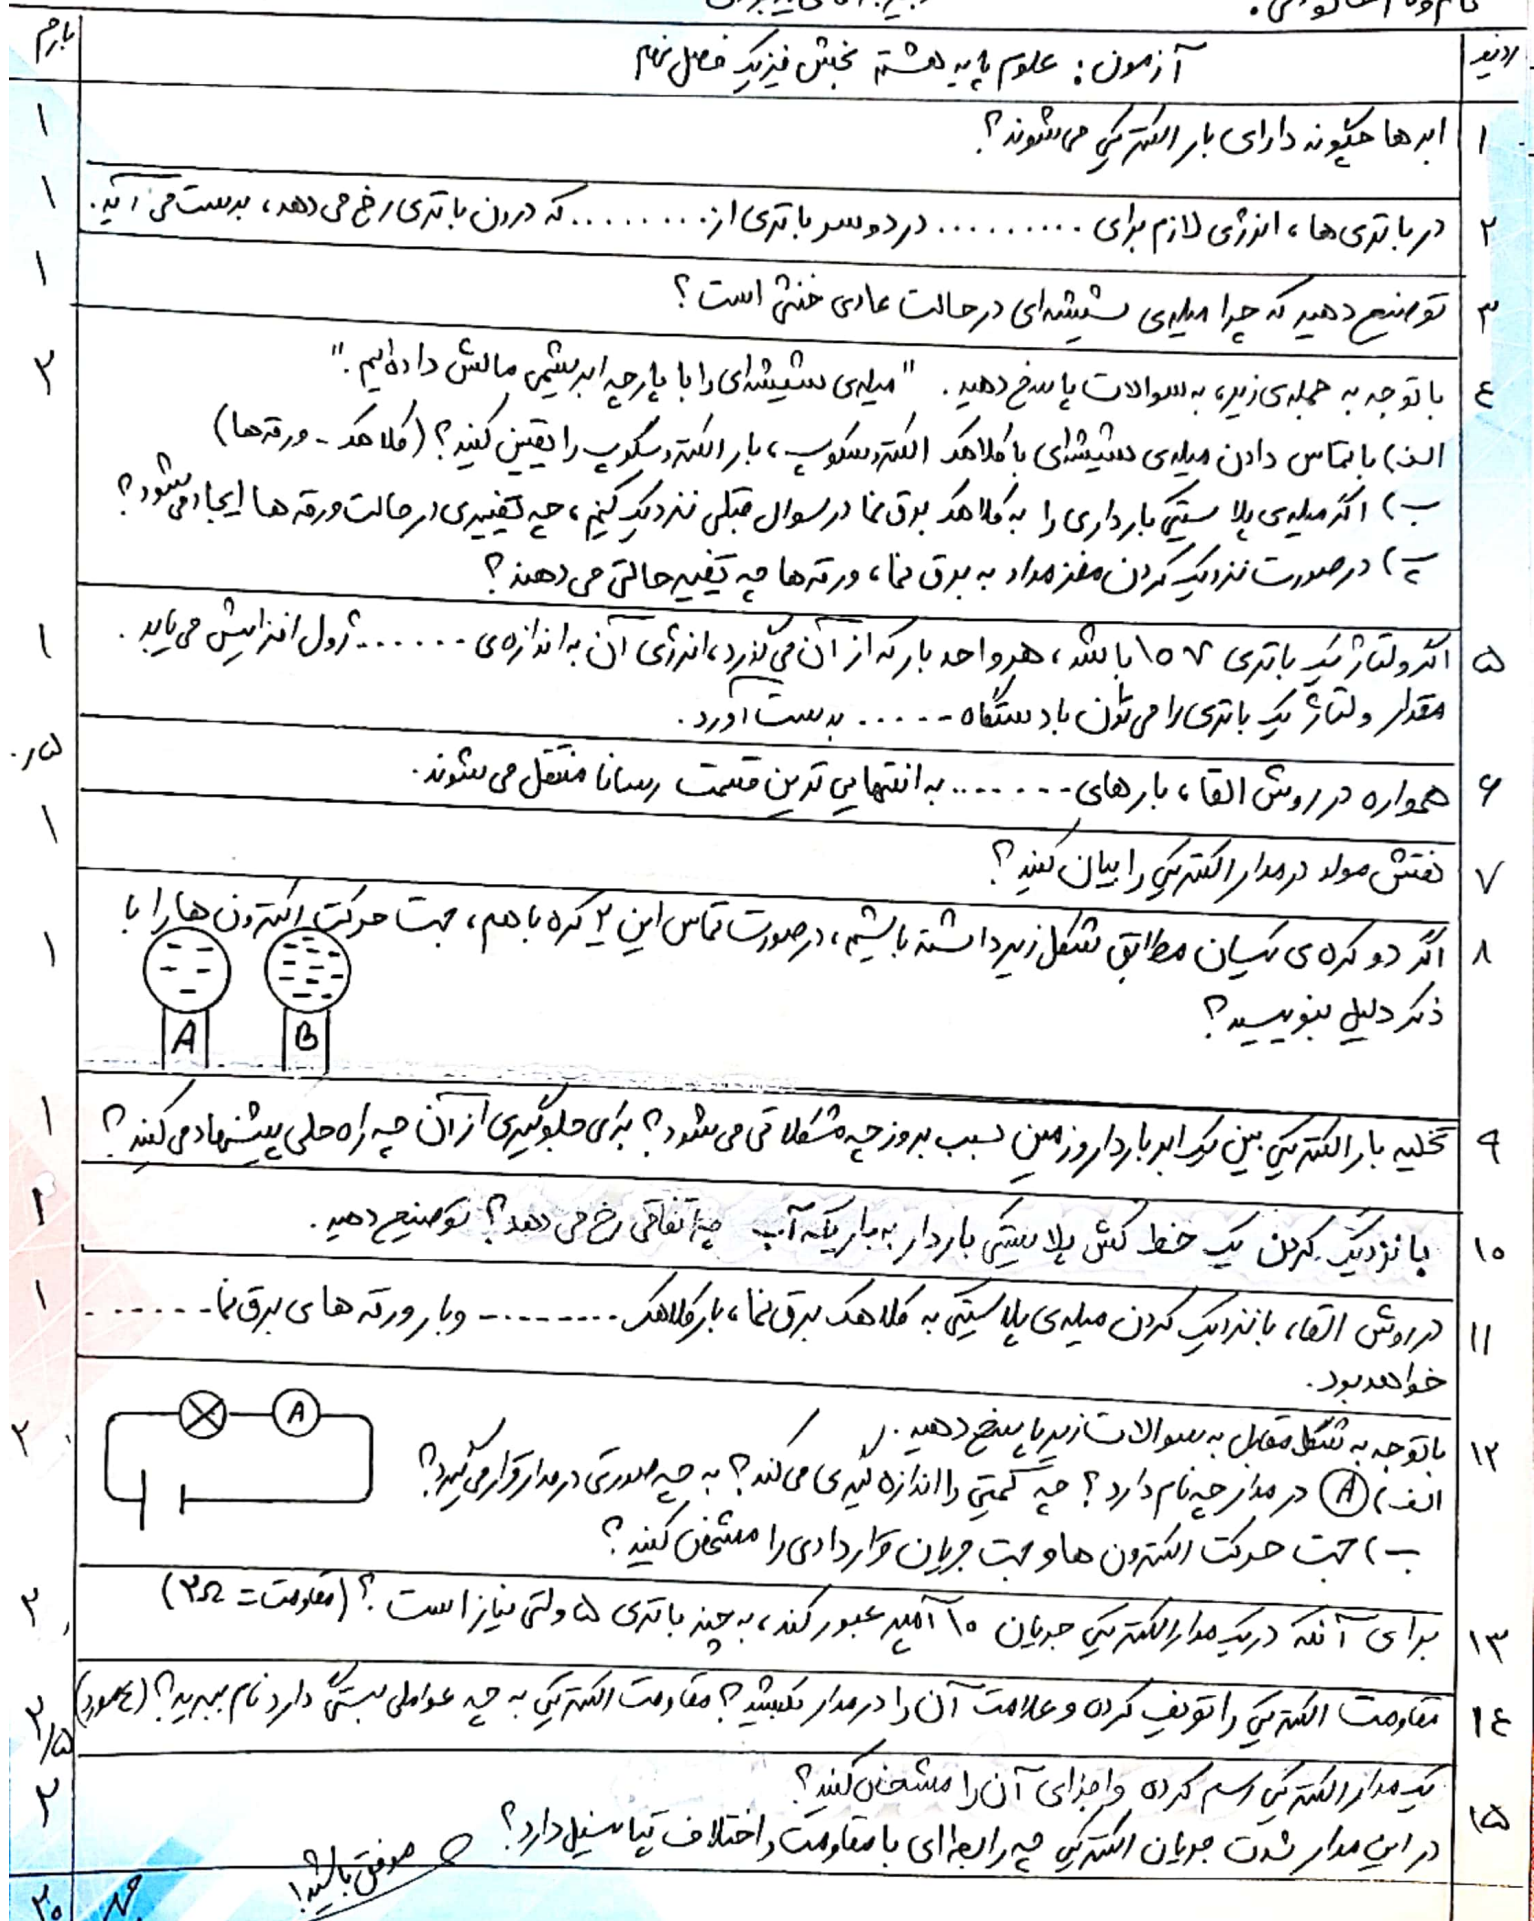 بارم
ردیف
آزمون: علوم پایه هشتم بخش فیزیک فصل نهم
۱ ابرها چگونه دارای بار الکتریکی می‌شوند؟ ۱
۲ در باتری‌ها، انرژی لازم برای .......... در دو سر باتری از ......... که درون باتری رخ می‌دهد، بدست می‌آید. ۱
۳ توضیح دهید که چرا میله‌ی شیشه‌ای در حالت عادی خنثی است؟ ۱
۴ با توجه به جمله‌ی زیر، به سوالات پاسخ دهید. "میله‌ی شیشه‌ای را با پارچه ابریشمی مالش داده‌ایم." ۳
الف) با تماس دادن میله‌ی شیشه‌ای با کلاهک الکتروسکوپ، بار الکتروسکوپ را تعیین کنید؟ (کلاهک - ورقه‌ها)
ب) اگر میله‌ی پلاستیکی بارداری را به کلاهک برق نما در سوال قبلی نزدیک کنیم، چه تغییری در حالت ورقه‌ها ایجاد می‌شود؟
پ) در صورت نزدیک کردن مغز مداد به برق نما، ورقه‌ها چه تغییر حالتی می‌دهند؟
۵ اگر ولتاژ یک باتری ۱۰V باشد، هر واحد بار که از آن می‌گذرد، انرژی آن به اندازه‌ی ....... ژول افزایش می‌یابد. ۱
مقدار ولتاژ یک باتری را می‌توان با دستگاه ..... بدست آورد.
۶ همواره در روش القا، بارهای ....... به انتهایی ترین قسمت رسانا منتقل می‌شوند. ۰/۵
۷ نقش مولد در مدار الکتریکی را بیان کنید؟ ۱
۸ اگر دو کره‌ی یکسان مطابق شکل زیر داشته باشیم، در صورت تماس این ۲ کره با هم، جهت حرکت الکترون‌ها را با ۱
ذکر دلیل بنویسید؟
A B
۹ تخلیه بار الکتریکی بین یک ابر باردار و زمین سبب بروز چه مشکلاتی می‌شود؟ برای جلوگیری از آن چه راه حلی پیشنهاد می‌کنید؟ ۱
۱۰ با نزدیک کردن یک خط کش پلاستیکی باردار به باریکه آب چه اتفاقی رخ می‌دهد؟ توضیح دهید. ۱
۱۱ در روش القا، با نزدیک کردن میله‌ی پلاستیکی به کلاهک برق نما، بار کلاهک ......... و بار ورقه‌های برق نما ....... ۱
خواهد بود.
۱۲ با توجه به شکل مقابل به سوالات زیر پاسخ دهید. ۲
A
الف) A در مدار چه نام دارد؟ چه کمیتی را اندازه گیری می‌کند؟ به چه صورتی در مدار قرار می‌گیرد؟
ب) جهت حرکت الکترون‌ها و جهت جریان قراردادی را مشخص کنید؟
۱۳ برای آنکه در یک مدار الکتریکی جریان ۱۰ آمپر عبور کند، به چند باتری ۵ ولتی نیاز است؟ (مقاومت = ۲Ω) ۲
۱۴ مقاومت الکتریکی را تعریف کرده و علامت آن را در مدار بکشید؟ مقاومت الکتریکی به چه عواملی بستگی دارد نام ببرید؟ (۴ مورد) ۲/۵
۱۵ یک مدار الکتریکی رسم کرده و اجزای آن را مشخص کنید؟ ۲
در این مدار شدت جریان الکتریکی چه رابطه‌ای با مقاومت و اختلاف پتانسیل دارد؟
موفق باشید!
۲۰